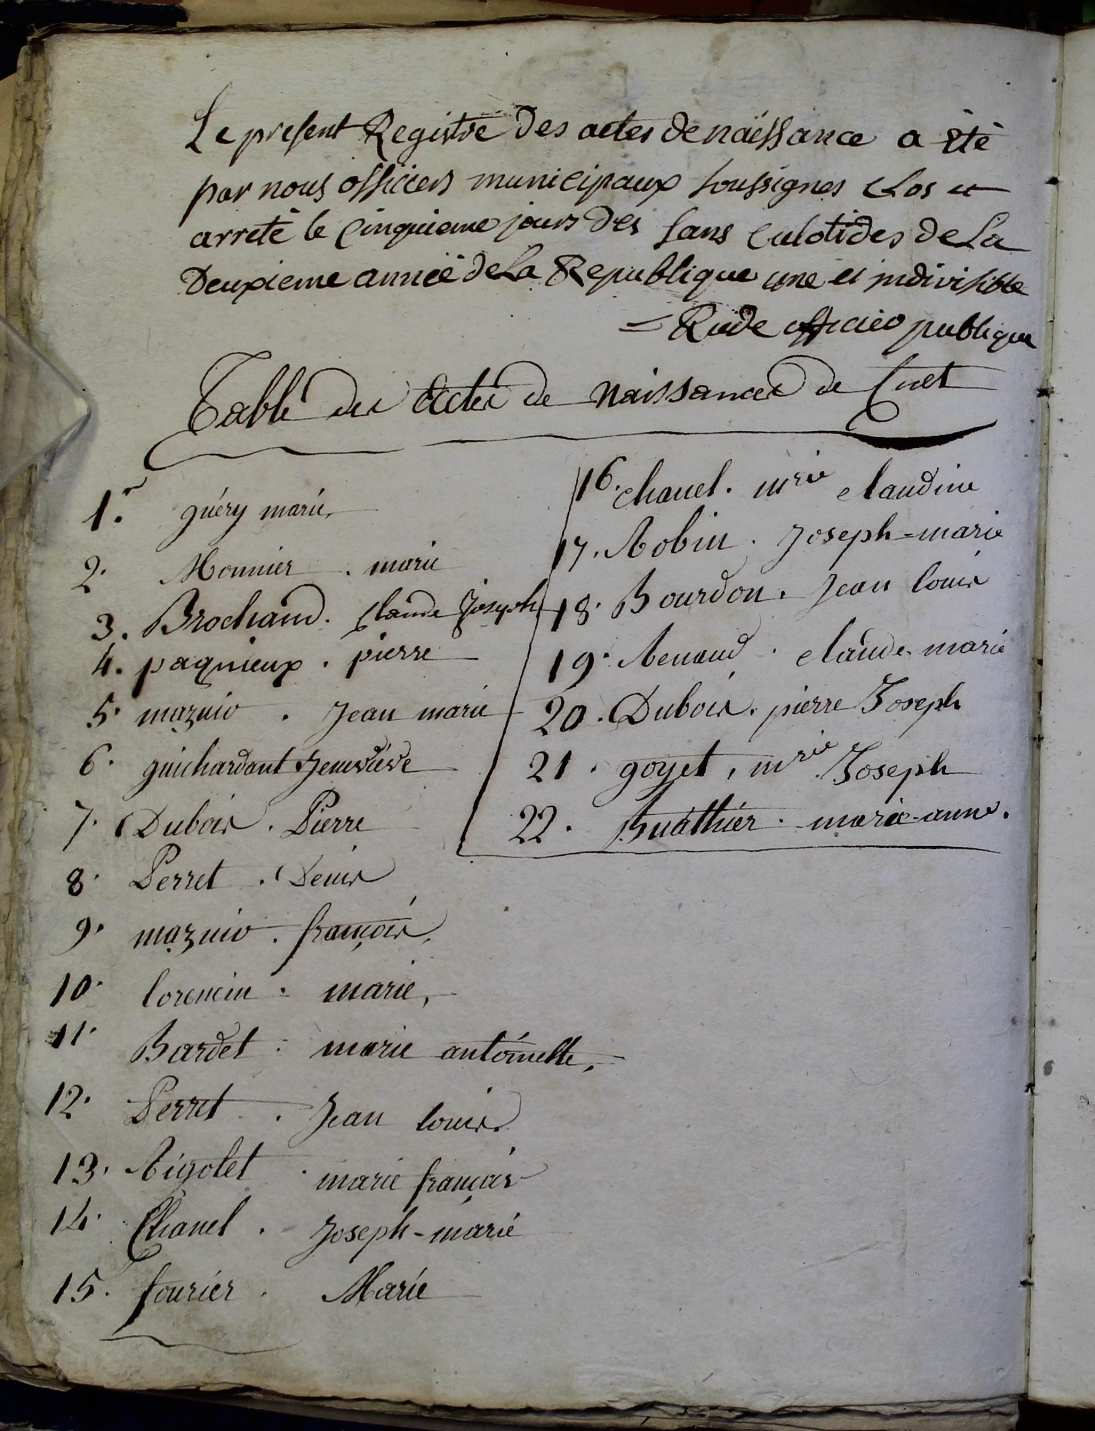 Le present Registre Des actes de naissance a été
par nous officiers municipaux soussignes Clos et
arreté le Cinquieme jours des sans Culotides de La
Deuxieme anneé de La Republique une et indivisible
Rude officier publique
Table des Actes de naissances de Cuet
1.r guéry marie
2. Monnier . marie
3. Brochand . Claude Joseph
4. paquieux . pierre
5. mazuir . Jean marie
6. guichardant Jenevieve
7. Dubois . Pierre
8. Perret . Denis
9. mazuir . françois
10. lorencin . marie
11. Bardet . marie antoinette
12. Perret . Jean louis
13. Rigolet . marie françois
14. Chanel . Joseph-marie
15. fourier . Marie
16. Chanel . mrie claudine
17. Robin . Joseph-marie
18. Bourdon . Jean louis
19. Renaud . claude marie
20. Dubois . pierre Joseph
21. goyet , mrie Joseph
22. Buathier . marie-anne .